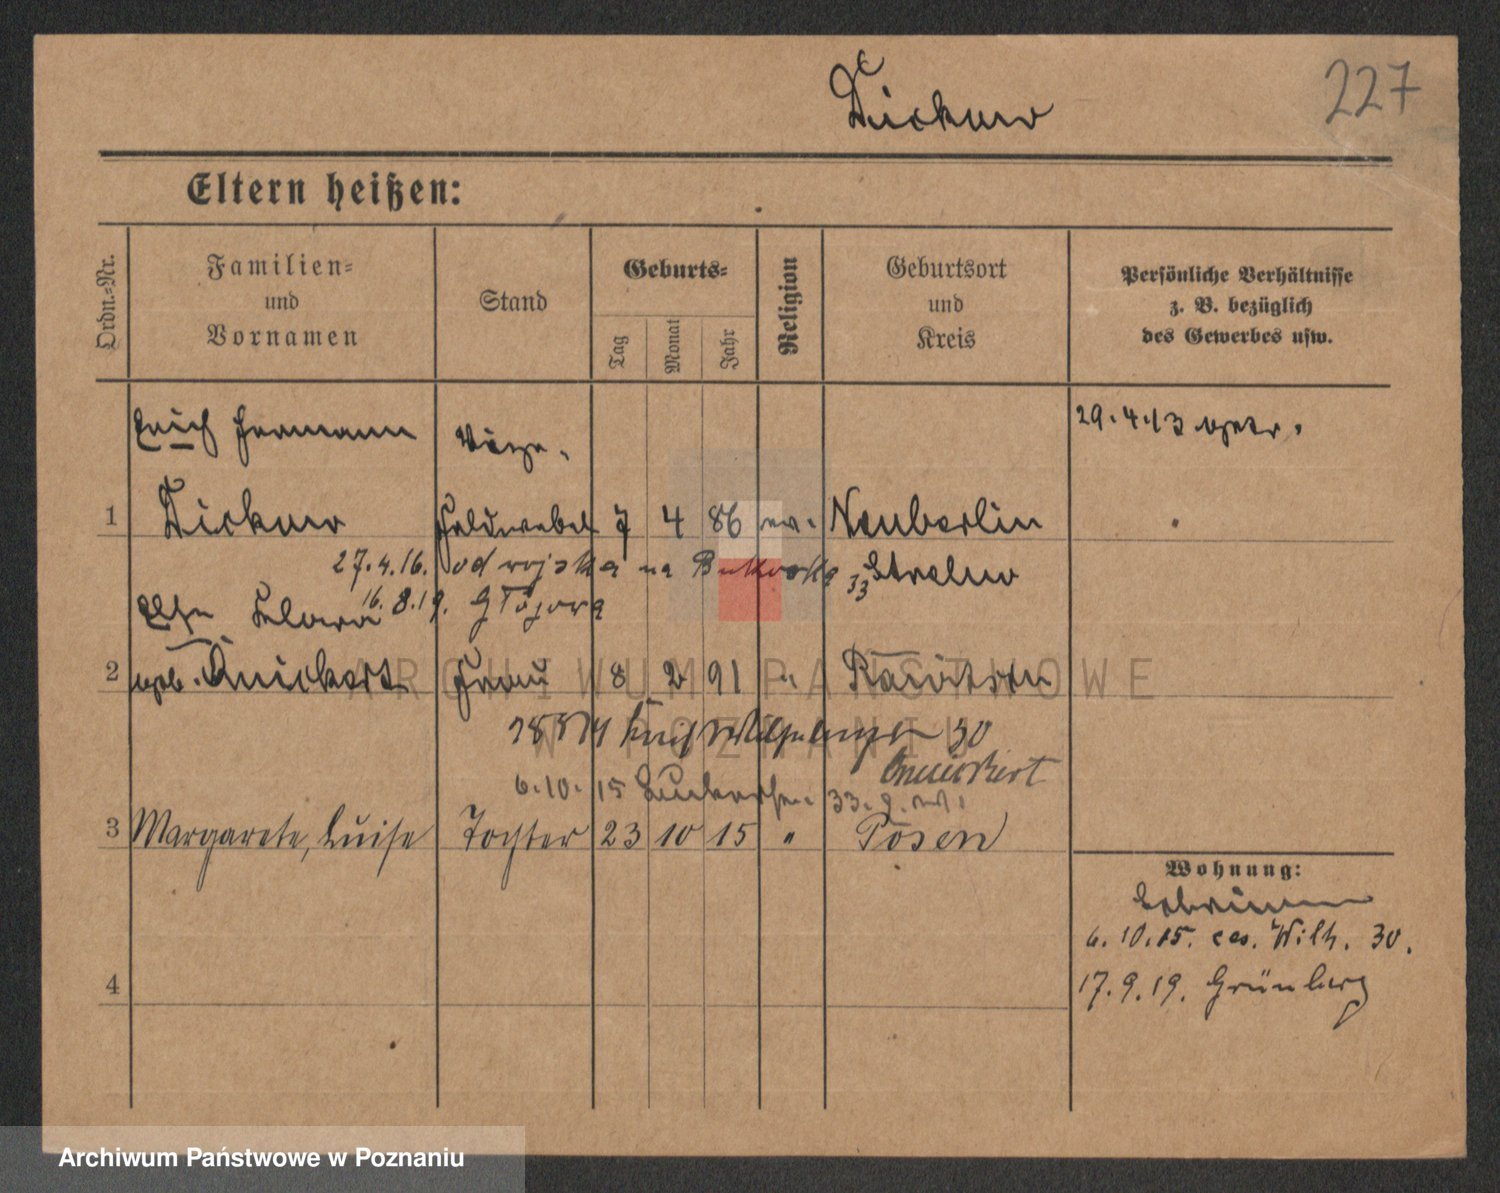 Dickow
227
Eltern heißen:
Ordn.-Nr.
Familien-
und
Vornamen
Stand
Geburts-
Tag
Monat
Jahr
Religion
Geburtsort
und
Kreis
Persönliche Verhältnisse
z. B. bezüglich
des Gewerbes usw.
Erich Hermann Vize- 29.4.13
1 Dickow Feldwebel 7 4 86 ev. Neuberlin
27.4.16. od wojska na Bukowska 33 Strelno
Else Klara 16.8.19.
2 geb. Quickert Frau 8 2 91 "
30
Quickert
6.10.15 33
3 Margarete, Luise Tochter 23 10 15 " Posen
4
Wohnung:
6.10.15. Wilh. 30.
17.9.19. Grünberg
ARCHIWUM PAŃSTWOWE
W POZNANIU
Archiwum Państwowe w Poznaniu